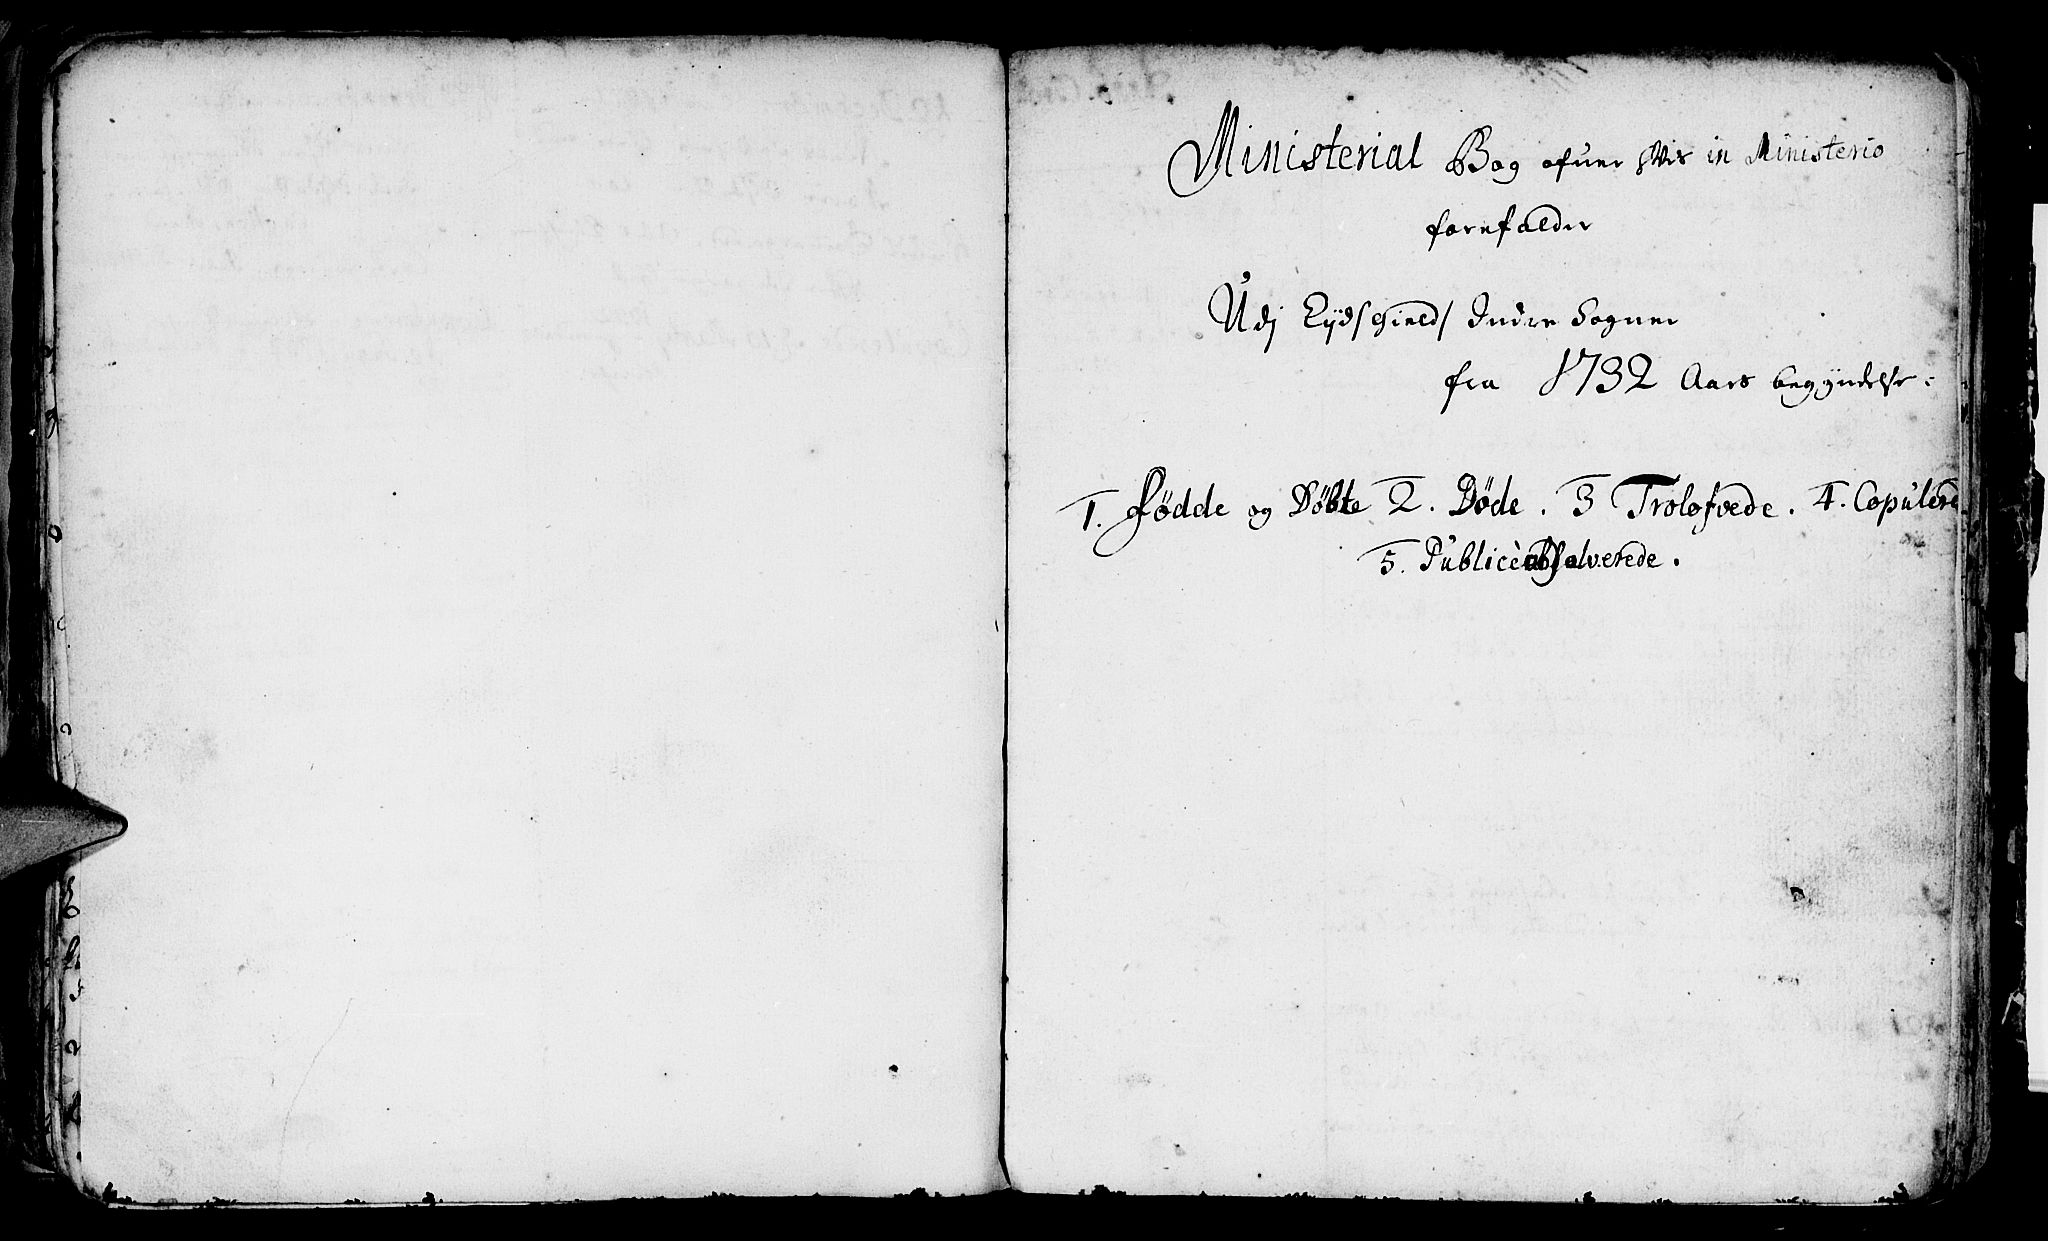 Ministerial Bog ofuer hvis in Ministerio
forefalder
Udj Eydsgields Indre Sogner
fra 1732 Aars begyndelse:
1. Födde og Döbte 2. Döde. 3 Trolofvede. 4. Copulere
5. Publicè absolverede.